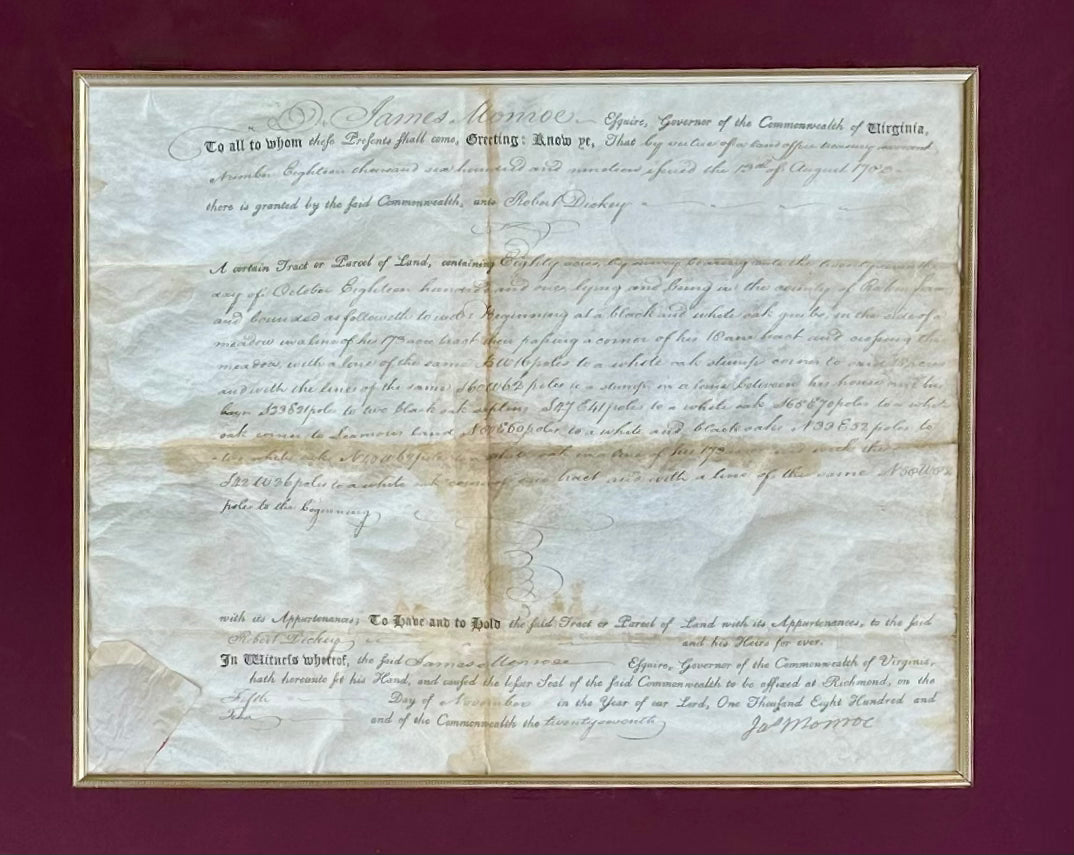 James Monroe Esquire, Governor of the Commonwealth of Virginia,
To all to whom these Presents shall come, Greeting: Know ye, That by virtue of a land office treasury warrant
Number Eighteen thousand six hundred and nineteen issued the 13th of August
there is granted by the said Commonwealth, unto Robert Dickey
A certain Tract or Parcel of Land, containing Eighty acres, by survey bearing date the
day of October Eighteen hundred and one lying and being in the county of
and bounded as followeth to wit: Beginning at a black and white oak in the side of a
meadow in a line of his 173 acre tract then passing a corner of his 18 acre tract and crossing the
meadow with a line of the same W 16 poles to a white oak stump corner to said
and with the lines of the same S60W62 poles to a stump in a lane between his house and his
barn S33E21 poles to two black oak saplins S47E41 poles to a white oak S65E70 poles to a white
oak corner to land N E60 poles to a white and black oak N33E52 poles to
two white oaks N40W69 poles to a white oak in a line of his 173 and with the
S42W36 poles to a white oak corner of said tract and with a line of the same
poles to the beginning
with its Appurtenances; To Have and to Hold the said Tract or Parcel of Land with its Appurtenances, to the said
Robert Dickey and his Heirs for ever.
In Witness whereof, the said James Monroe Esquire, Governor of the Commonwealth of Virginia,
hath hereunto set his Hand, and caused the lesser Seal of the said Commonwealth to be affixed at Richmond, on the
Fifth Day of November in the Year of our Lord, One Thousand Eight Hundred and
Two and of the Commonwealth the twentyseventh
Jas Monroe